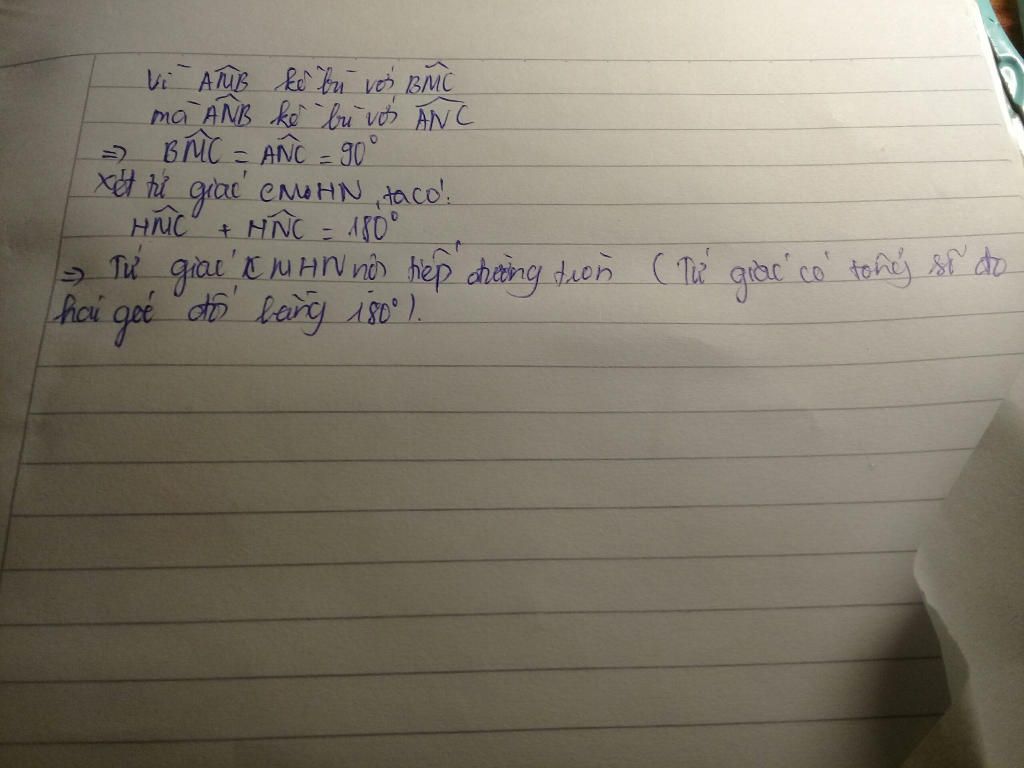 Vì AM̂B kề bù với BM̂C
mà AN̂B kề bù với AN̂C
=> BM̂C = AN̂C = 90°
Xét tứ giác CMHN, ta có:
HM̂C + HN̂C = 180°
=> Tứ giác CMHN nội tiếp đường tròn (Tứ giác có tổng số đo
hai góc đối bằng 180°).